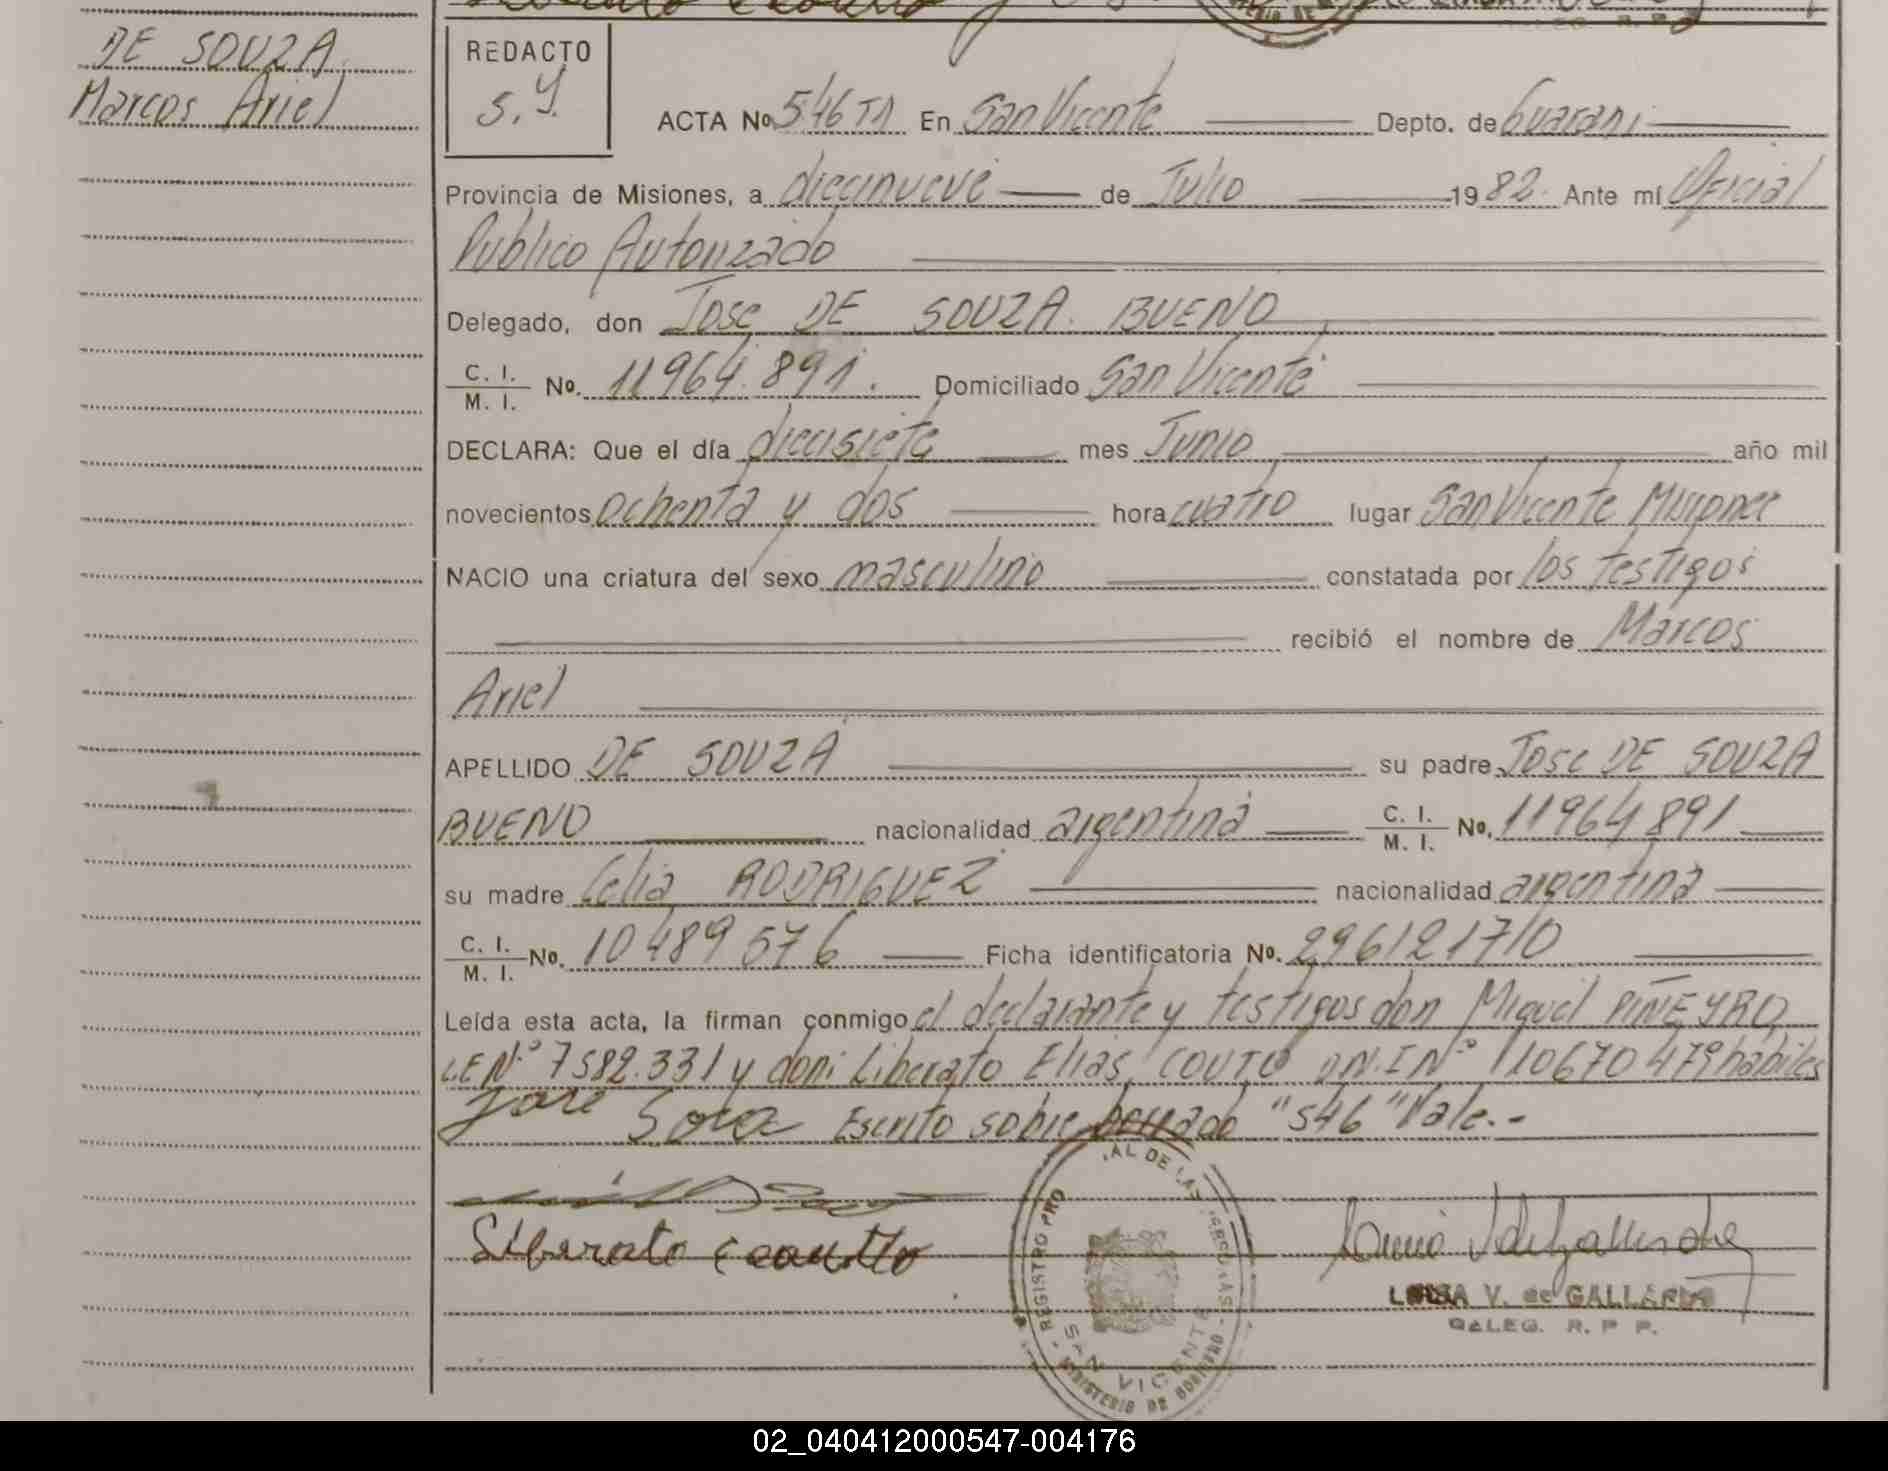 DE SOUZA
Marcos Ariel
REDACTO
S.Y.
ACTA No. 546 T1 En San Vicente Depto. de Guarani
Provincia de Misiones, a diecinueve de Julio 1982. Ante mí Oficial
Publico Autorizado
Delegado, don Jose DE SOUZA BUENO
C. I. / M. I. No. 11964.891. Domiciliado San Vicente
DECLARA: Que el día diecisiete mes Junio año mil
novecientos ochenta y dos hora cuatro lugar San Vicente Misiones
NACIO una criatura del sexo masculino constatada por los testigos
recibió el nombre de Marcos
Ariel
APELLIDO DE SOUZA su padre Jose DE SOUZA
BUENO nacionalidad argentina C. I. / M. I. No. 11964891
su madre Celia RODRIGUEZ nacionalidad argentina
C. I. / M. I. No. 10489576 Ficha identificatoria No. 296121710
Leída esta acta, la firman conmigo el declarante y testigos don Miguel PIÑEYRO
L.E Nº 7582.331 y don Liberato Elias COUTO D.N.I Nº 10670479 habiles
Jose Soza Escrito sobre borrado "546" Vale.-
REGISTRO PRO AL DE LAS PERSONAS
SAN VICENTE
MINISTERIO DE GOBIERNO
LUISA V. de GALLARDO
DALEG. R. P P.
02_040412000547-004176